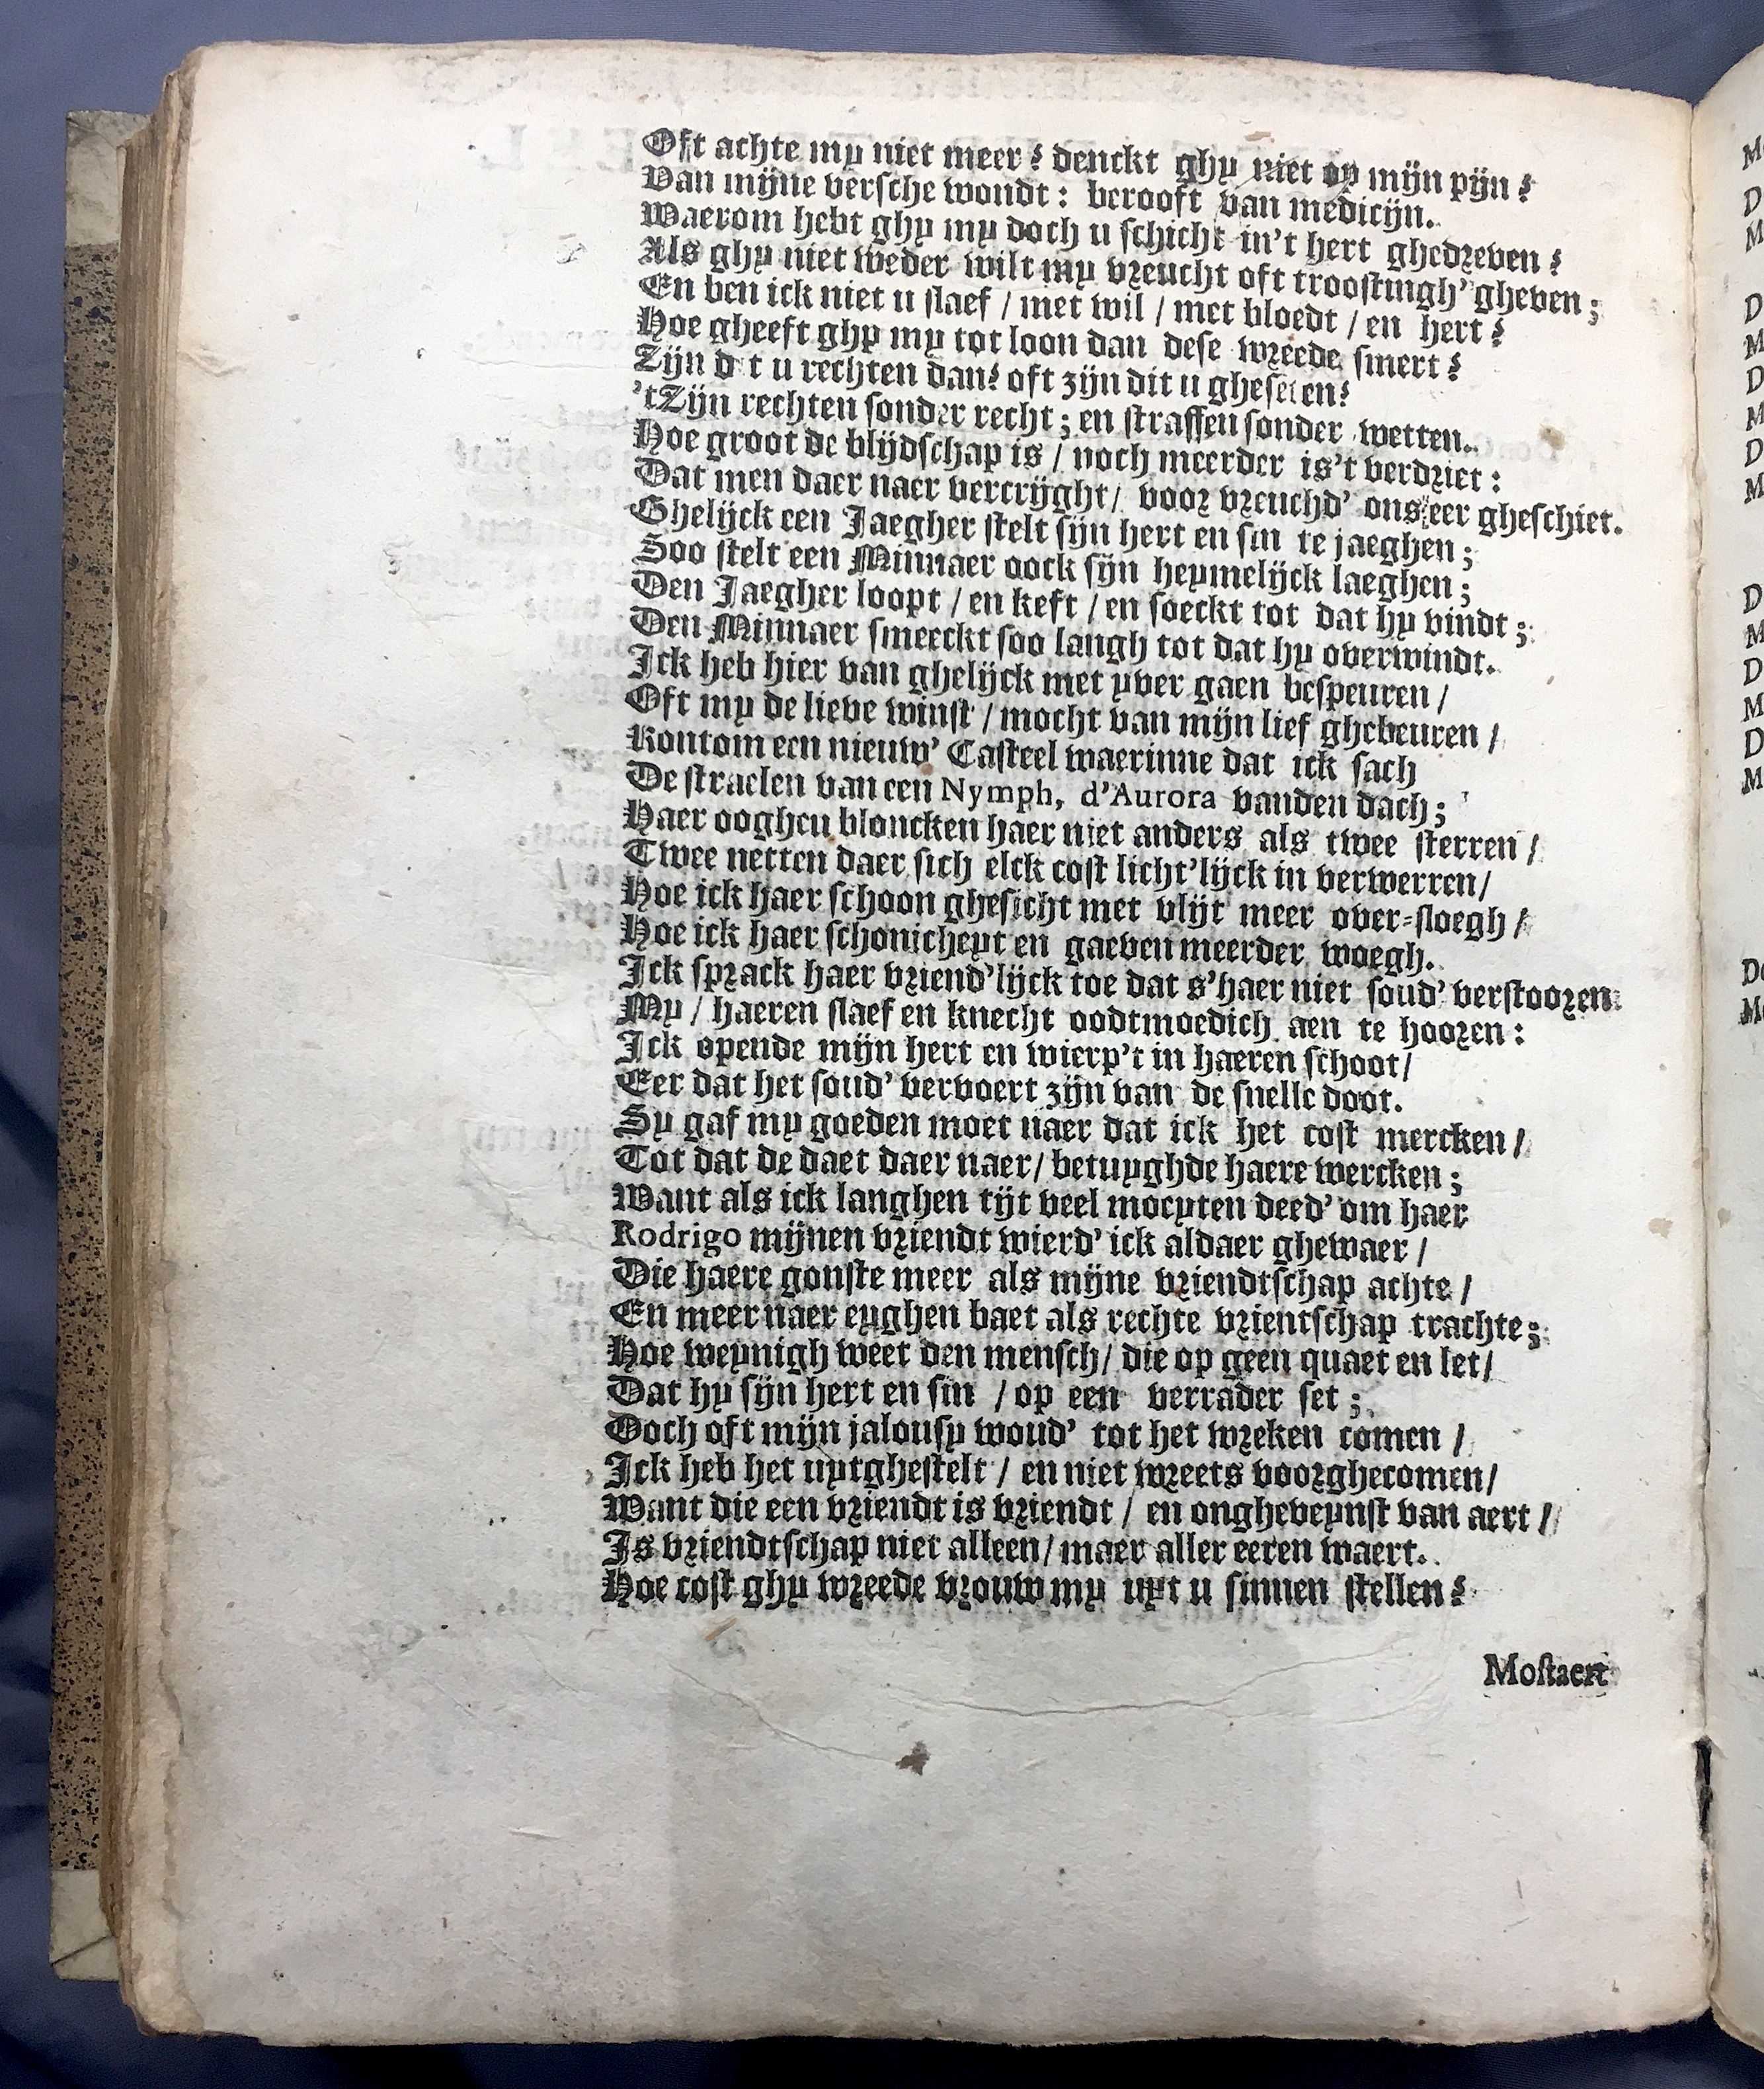 Oft achte my niet meer? denckt ghy niet op mijn pijn?
Van mijne versche wondt: berooft van medicijn.
Waerom hebt ghy my doch u schicht in't hert ghedreven?
Als ghy niet weder wilt my vreucht oft troostingh' gheven;
En ben ick niet u slaef / met wil / met bloedt / en hert?
Hoe gheeft ghy my tot loon dan dese wreede smert?
Zijn d t u rechten dan? oft zijn dit u ghesetten?
'tZijn rechten sonder recht; en straffen sonder wetten.
Hoe groot de blijdschap is / noch meerder is't verdriet:
Dat men daer naer vercrijght / voor vreuchd' ons eer gheschiet.
Ghelijck een Jaegher stelt sijn hert en sin te jaeghen;
Soo stelt een Minnaer oock sijn heymelijck laeghen;
Den Jaegher loopt / en keft / en soeckt tot dat hy vindt;
Den Minnaer smeeckt soo langh tot dat hy overwindt.
Ick heb hier van ghelijck met yver gaen bespeuren /
Oft my de lieve winst / mocht van mijn lief ghebeuren /
Rontom een nieuw' Casteel waerinne dat ick sach
De straelen van een Nymph, d'Aurora vanden dach;
Haer ooghen bloncken haer niet anders als twee sterren /
Twee netten daer sich elck cost licht'lijck in verwerren /
Hoe ick haer schoon ghesicht met vlijt meer over-sloegh /
Hoe ick haer schonicheyt en gaeven meerder woegh.
Ick sprack haer vriend'lijck toe dat s'haer niet soud' verstooren
My / haeren slaef en knecht oodtmoedich aen te hooren:
Ick opende mijn hert en wierp't in haeren schoot /
Eer dat het soud' vervoert zijn van de snelle doot.
Sy gaf my goeden moet naer dat ick het cost mercken /
Tot dat de daet daer naer / betuyghde haere wercken;
Want als ick langhen tijt veel moeyten deed' om haer
Rodrigo mijnen vriendt wierd' ick aldaer ghewaer /
Die haere gonste meer als mijne vriendtschap achte /
En meer naer eyghen baet als rechte vrientschap trachte;
Hoe weynigh weet den mensch / die op geen quaet en let /
Dat hy sijn hert en sin / op een verrader set;
Doch oft mijn jalousy woud' tot het wreken comen /
Ick heb het uytghestelt / en niet wreets voorghecomen /
Want die een vriendt is vriendt / en ongheveynst van aert /
Is vriendtschap niet alleen / maer aller eeren waert.
Hoe cost ghy wreede vrouw my uyt u sinnen stellen?
Mostaert